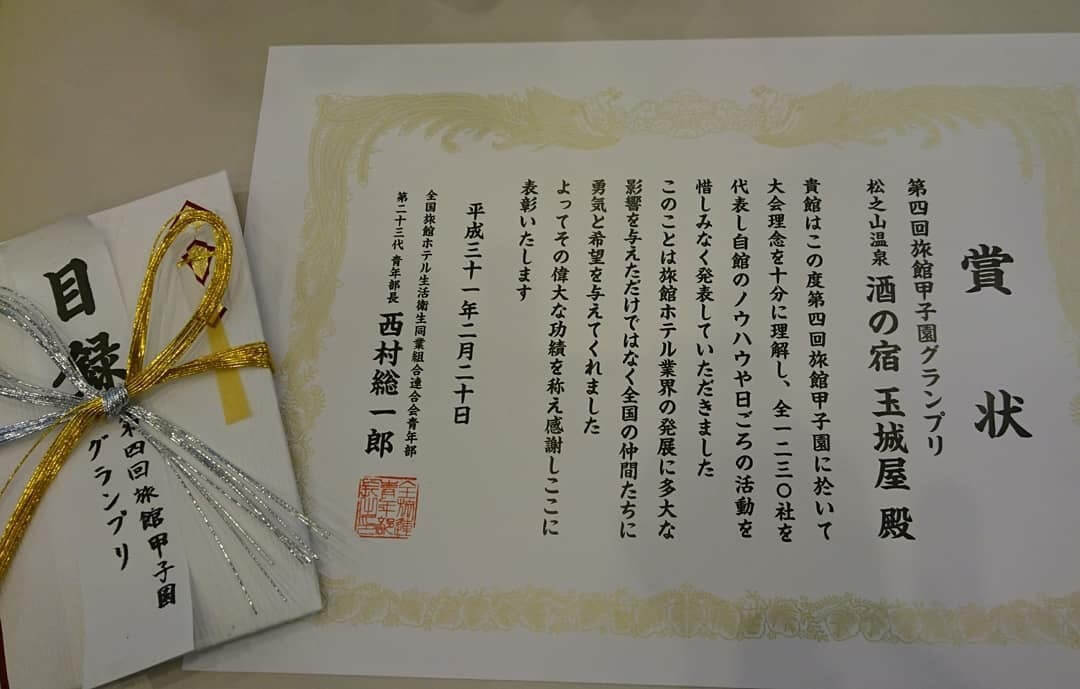 賞状
第四回旅館甲子園グランプリ
松之山温泉 酒の宿 玉城屋 殿
貴館はこの度第四回旅館甲子園に於いて
大会理念を十分に理解し、全一二三〇社を
代表し自館のノウハウや日ごろの活動を
惜しみなく発表していただきました
このことは旅館ホテル業界の発展に多大な
影響を与えただけではなく全国の仲間たちに
勇気と希望を与えてくれました
よってその偉大な功績を称え感謝しここに
表彰いたします
平成三十一年二月二十日
全国旅館ホテル生活衛生同業組合連合会青年部
第二十三代 青年部長 西村総一郎
目録
第四回旅館甲子園
グランプリ